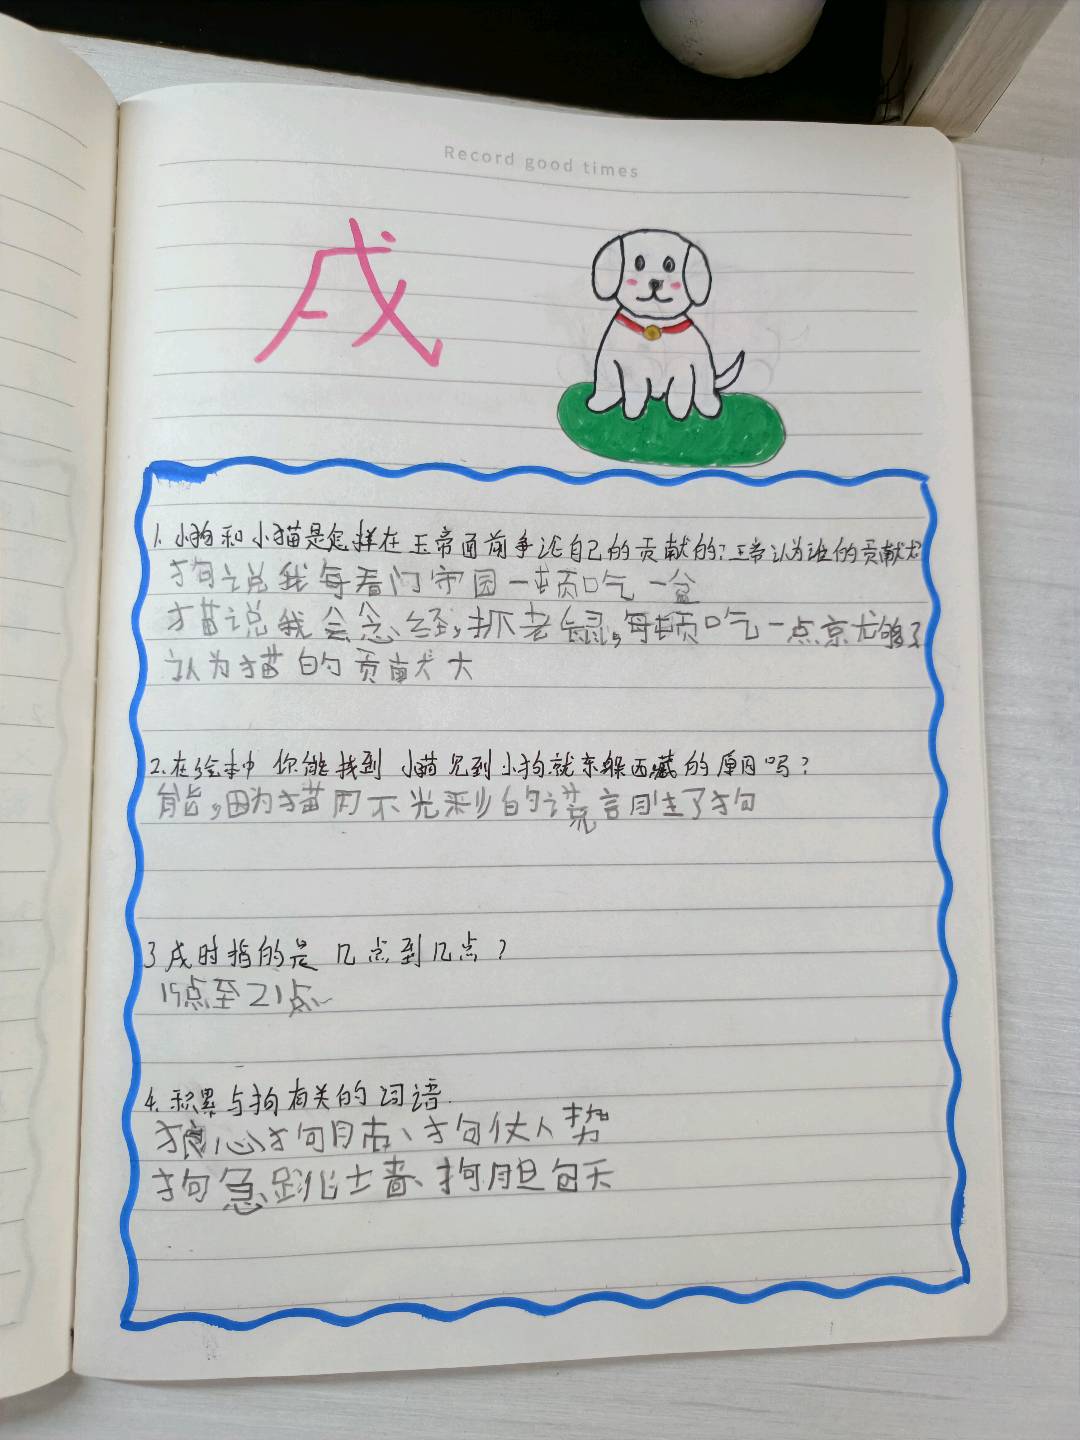 Record good times
戌
1.小狗和小猫是怎样在玉帝面前争论自己的贡献的?玉帝认为谁的贡献大
狗说我每看门守园一顿吃一盆
猫说我会念经,抓老鼠,每顿吃一点京尤够了
认为猫的贡献大
2.在绘本中你能找到小猫见到小狗就东躲西藏的原因吗?
能,因为猫用不光彩的谎言
了狗
3戌时指的是几点到几点?
19点至21点
4.积累与狗有关的词语.
狼心狗肺、狗仗人势
狗急跳土墙、狗胆包天